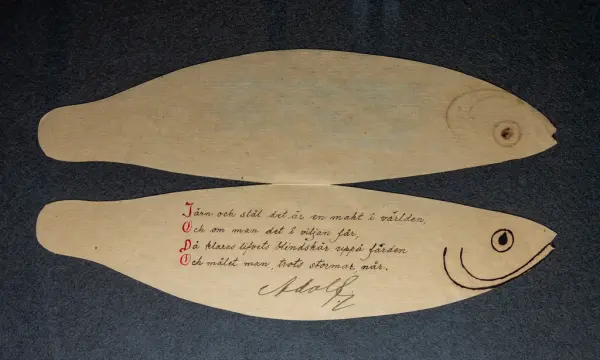 Järn och stål det är en makt i världen,
Och om man det i viljan får,
Då klaras lifvets blindskär uppå färden
Och målet man, trots stormar når.
Adolf